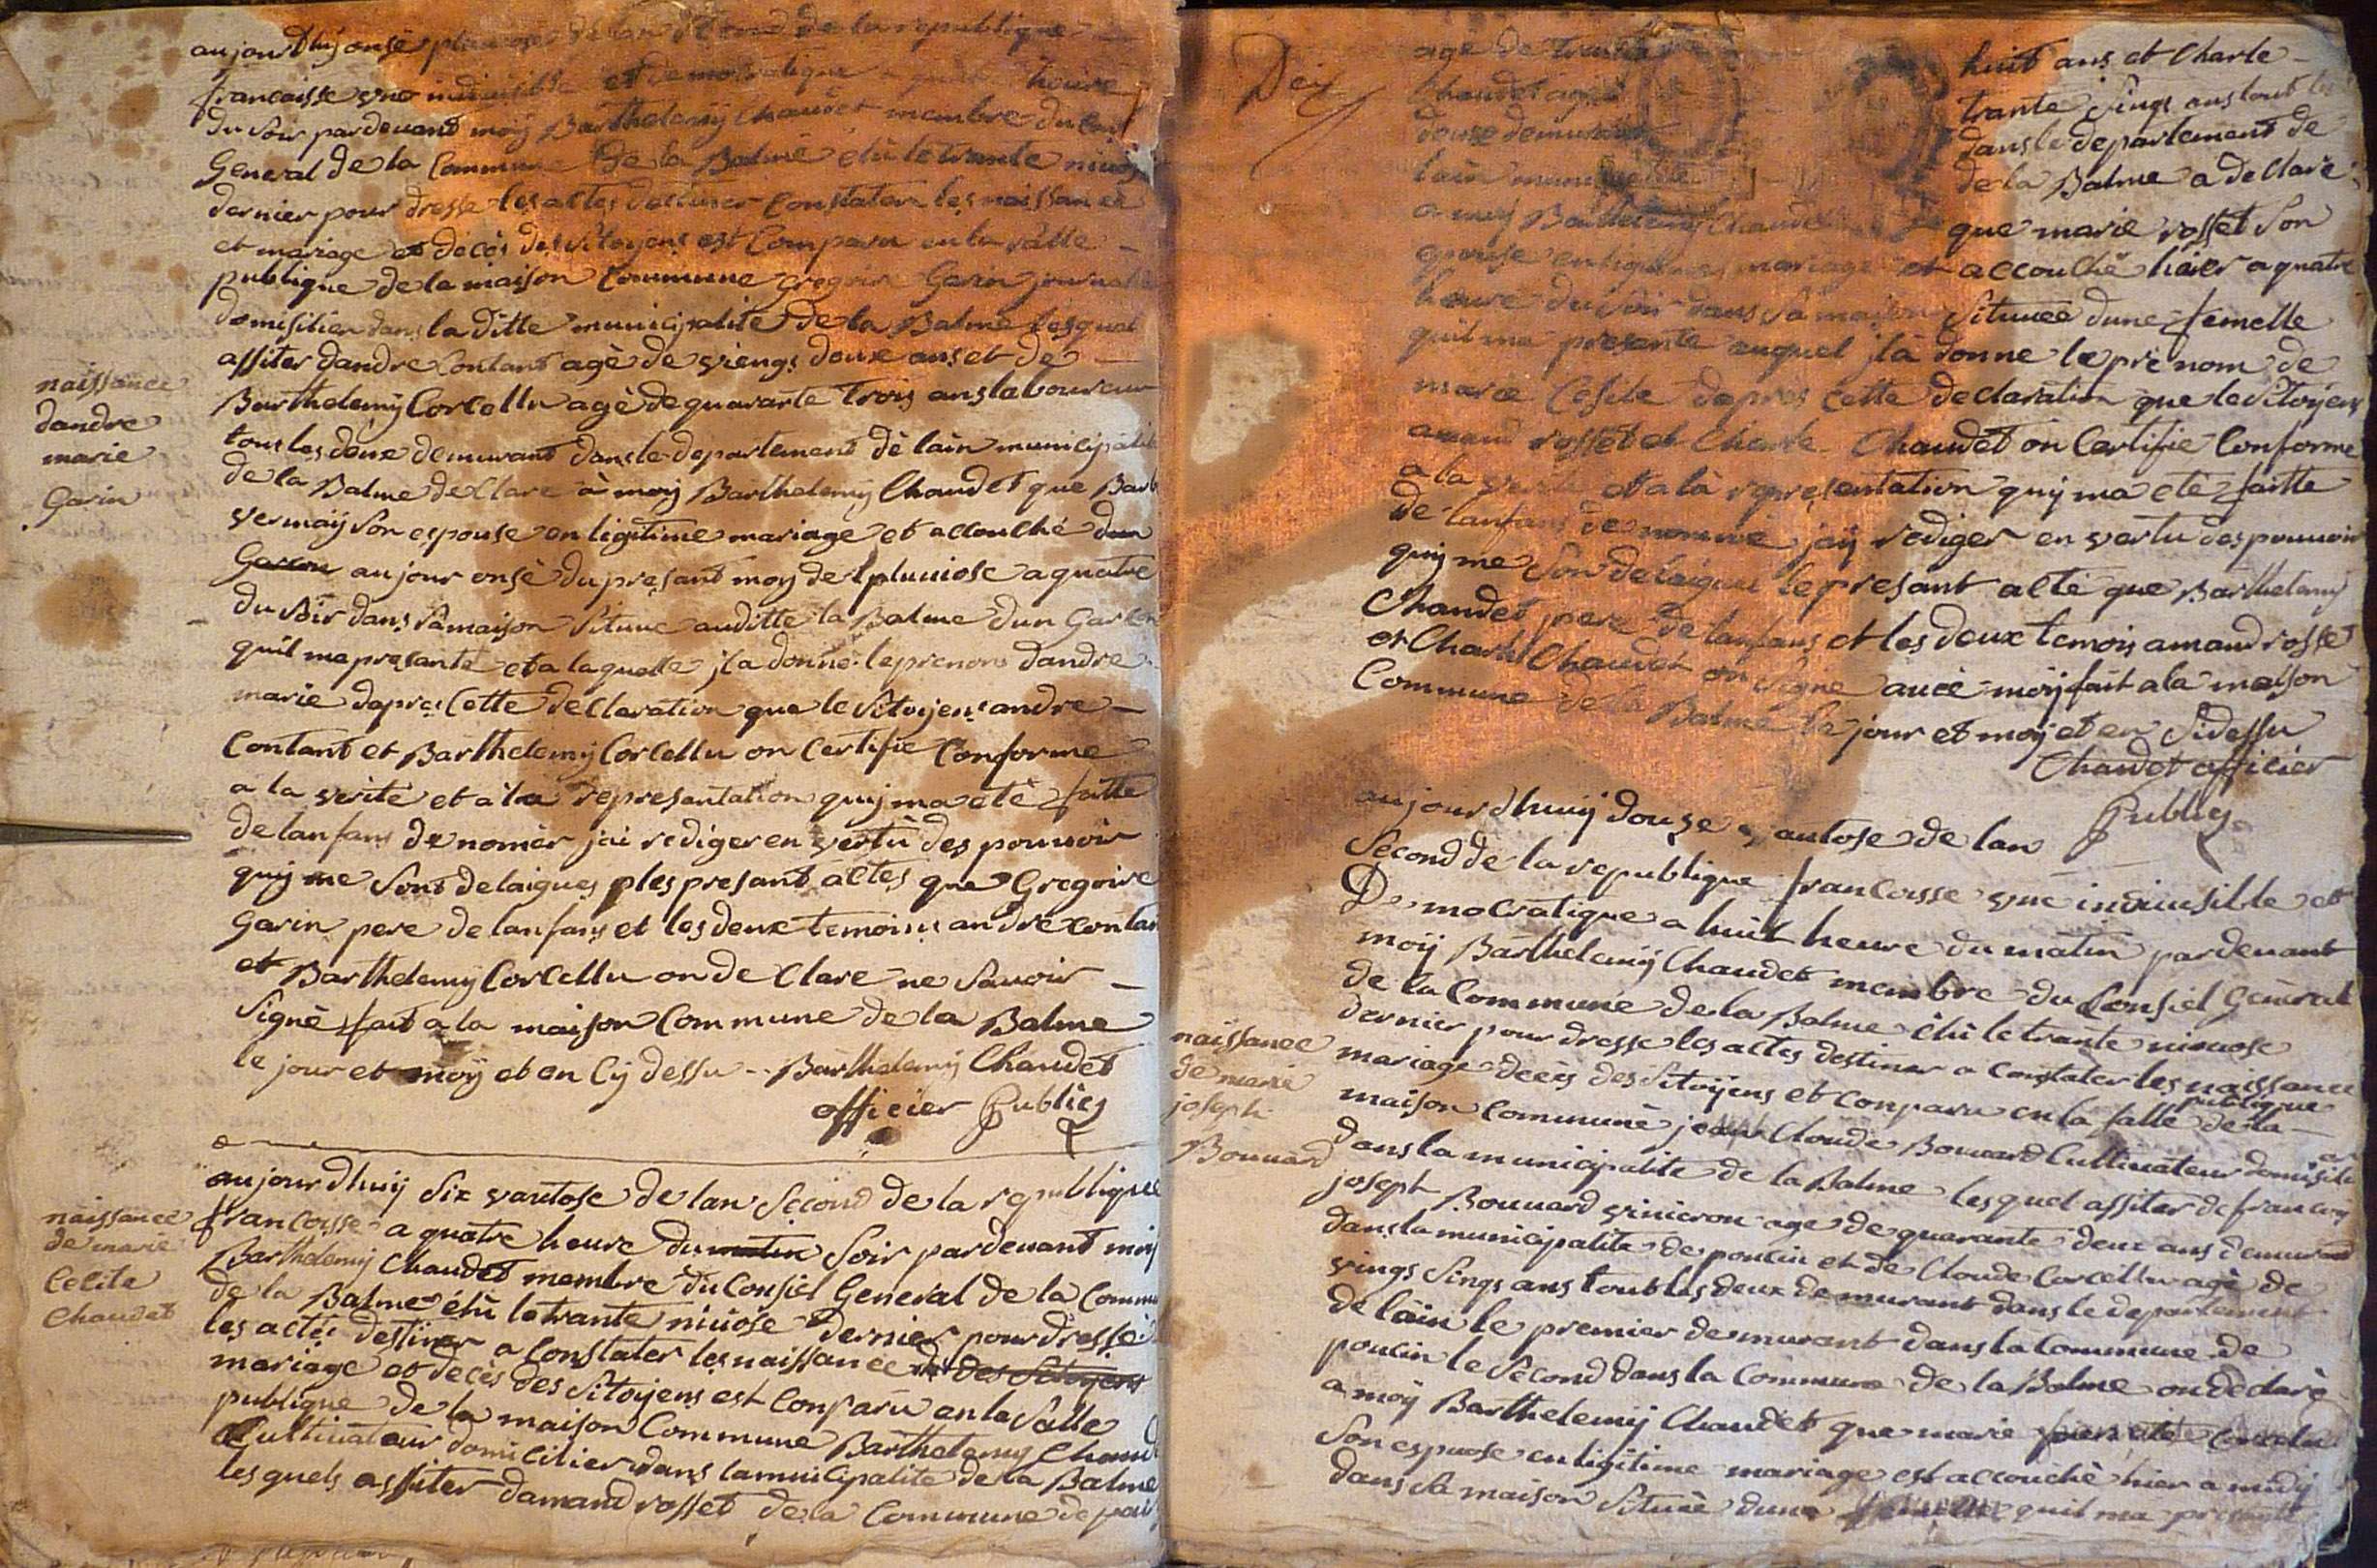 aujourdhuy onsé pluviose de lan second de la republique
francaisse une indivisible et democratique a quatre heure
du soir pardevant moij Barthelemij Chaudet membre du
General de la Commune de la Balme elù le trante nivose
dernier pour dresse les actes destiner Constater les naissance
et mariage et décès des Sitoyens est Comparu en la salle
publique de la maison Commune gregoire Garin
domisilier dans la ditte municipalité de la Balme lesquel
assiter dandre Contant agè de viengs deux ans et de
Barthelemij Corcellu agè de quarante trois ans laboureur
tous les deux demurant dans le departement dè lain municipalité
de la Balme declare à moij Barthelemij Chaudet que
vermaij son espouse en ligitime mariage et accouché dun
Garcon aujour onsè du presant moy de pluviose a quatre
du soir dans sa maison situee auditte la Balme dun Garcon
quil ma presanté et a laquelle jl a donne le prenons dandre
marie dapres cette declaration que le Sitoyens andre
Contant et Barthelemij Corcellu on certifie conforme
a la verité et a la representation quij ma etè fatte
de lanfans de nomèr jai rediger en vertù des pouvoir
quij me sont delaigues les presant actes que Gregoire
Garin pere de lanfans et les deux temoins andré contant
et Barthelemy Corcellu on de clare ne savoir
signè fait a la maison Commune de la Balme
le jour et moij et en cy dessu Barthelemij Chaudet
officier Publicq
naissance
dandre
marie
Garin
aujourdhuij six vantose de lan second de la republique
francoisse a quatre heure du matin soir pardevant moij
Barthelemij Chaudet membre du Consiel General de la Commune
de la Balme élù le trante nivose dernier pour dresse
les actes destiner a constater les naissance des Sitoyens
mariage et decès des Sitoyens est Comparu en la salle
publique de la maison Commune Barthelemy Chaudet
Cultivateur domicilier dans la municipalite de la Balme
lesquels assiter damand rosset de la Commune de
naissance
de marie
Celite
Chaudet
Deij
agé de trante huit ans et Charle
Chaudet agè trante sings ans tout les
deux demurant dans le departement de
lain municipalité de la Balme a declarè
a moij Barthelemij Chaudet que marie rosset son
epouse en ligitime mariage et accouché hier a quatre
heure du soir dans sa maison situee dune femelle
quil ma presante auquel jl a donne le prènom de
marie Cesite dapres cette declaration que le Sitoyens
amand rosset et Charle Chaudet on certifie conforme
a la verité et a la representation quij ma etè faitte
de lanfans de nomme jaij rediger en vertu des pouvoir
quij me son delaigue le presant acte que Barthelemij
Chaudet pere de lanfans et les deux temois amand rosset
et Charle Chaudet on signe avec moij fait a la maison
Commune de la Balme le jour et moij et en sidessu
Chaudet officier
Publicq
aujourdhuij douze vantose de lan
second de la republique francoisse une indivisible et
Democratique a huit heure du matin pardevant
moij Barthelemij Chaudet membre du Consiel General
de la Commune de la Balme élù le trante nivose
dernier pour dresse les actes destiner a constater les naissance
mariage decès des Sitoyens et comparu en la salle publique de la
maison Communè jean Cloude Bouvard Cultivateur domisilier
dans la municipalite de la Balme lesquel assiter de francois
joseph Bouvard vinieron age de quarante deux ans demurant
dans la municipalite de poncin et de Cloude Corcellu agè de
vings sings ans tout les deux demurant dans le departement
de lain le premier demurant dans la Commune de
poncin le second dans la Commune de la Balme on declarè
a moij Barthelemij Chaudet que marie Corcelu
son espouse en ligitime mariage est accouchè hier a midij
dans sa maison situeè dune quil ma presanté
naissance
de marie
joseph
Bouvard